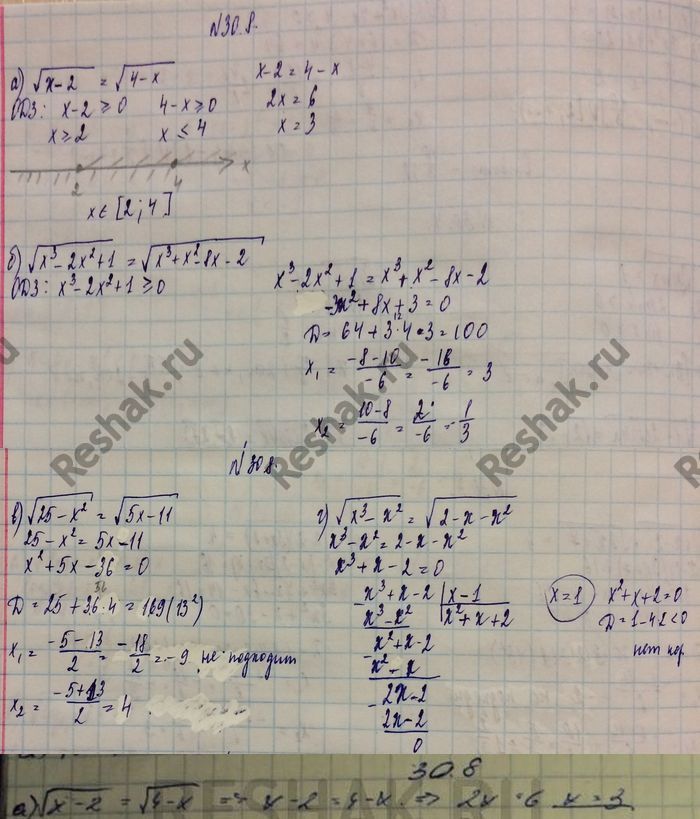 N30.8.
а) √(x-2) = √(4-x)
ОДЗ: x-2 ≥ 0 4-x ≥ 0
x ≥ 2 x ≤ 4
x-2 = 4-x
2x = 6
x = 3
2 4 x
x ∈ [2; 4]
б) √(x³-2x²+1) = √(x³+x²-8x-2)
ОДЗ: x³-2x²+1 ≥ 0
x³-2x²+1 = x³+x²-8x-2
-3x²+8x+3 = 0
12
D = 64+3·4·3 = 100
x₁ = (-8-10)/(-6) = (-18)/(-6) = 3
x₂ = (10-8)/(-6) = 2/(-6) = -1/3
Reshak.ru
Reshak.ru
N 30.8.
в) √(25-x²) = √(5x-11)
25-x² = 5x-11
x²+5x-36 = 0
36
D = 25+36·4 = 169 (13²)
x₁ = (-5-13)/2 = -18/2 = -9 не подходит
x₂ = (-5+13)/2 = 4
г) √(x³-x²) = √(2-x-x²)
x³-x² = 2-x-x²
x³+x-2 = 0
x³+x-2 | x-1
x³-x² | x²+x+2
x²+x-2
x²-x
2x-2
2x-2
0
x=1
x²+x+2=0
D=1-42<0
нет кор
30.8
RESHAK.RU
а) √(x-2) = √(4-x) => x-2 = 4-x => 2x = 6 x = 3